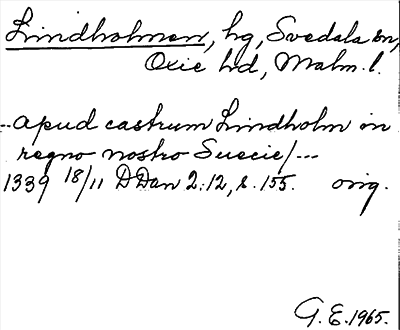 Lindholmen, hg, Svedala sn,
Oxie hd, Malm. l.
--apud castrum Lindholm in
regno nostro Suecie/---
1339 18/11 DDan 2:12, s. 155. orig.
G.E. 1965.